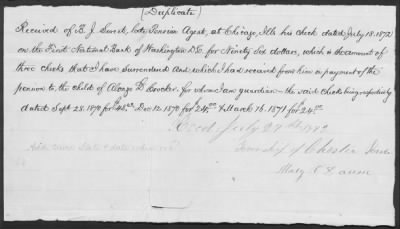 (Duplicate)
Received of B. J. Sweet, late Pension Agent, at Chicago, Ills his check dated July 18, 1872
on the First National Bank of Washington D.C. for Ninety Six dollars, which is the amount of
three checks that I have surrendered and which I had received from him in payment of the
pension to the child of Alonzo D. Brooker for whom I am guardian - the said checks being respectively
dated Sept 28. 1870 for $48.00, Dec 12. 1870 for 24.00 & March 16. 1871 for 24.00
Recd July 27th 1872
Township of Chester Iowa
Mary